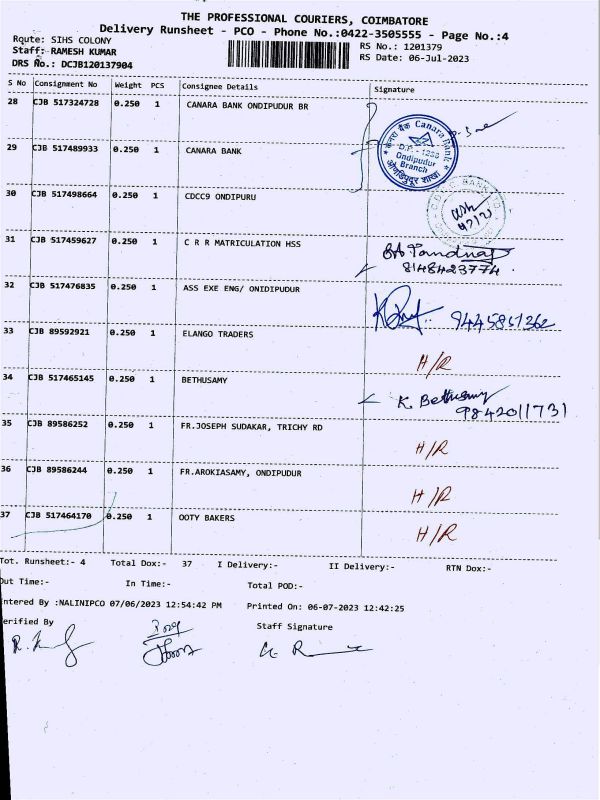 THE PROFESSIONAL COURIERS, COIMBATORE
Delivery Runsheet - PCO - Phone No.:0422-3505555 - Page No.:4
Route: SIHS COLONY
RS No.: 1201379
Staff: RAMESH KUMAR
RS Date: 06-Jul-2023
DRS No.: DCJB120137904
S No Consignment No Weight PCS Consignee Details Signature
28 CJB 517324728 0.250 1 CANARA BANK ONDIPUDUR BR
केनरा बैंक Canara Bank
D.P. - 1238
Ondipudur
Branch
29 CJB 517489933 0.250 1 CANARA BANK
30 CJB 517498664 0.250 1 CDCC9 ONDIPURU
31 CJB 517459627 0.250 1 C R R MATRICULATION HSS
8148423774
32 CJB 517476835 0.250 1 ASS EXE ENG/ ONIDIPUDUR
9445851362
33 CJB 89592921 0.250 1 ELANGO TRADERS
H/R
34 CJB 517465145 0.250 1 BETHUSAMY
K. Bethusamy
9842011731
35 CJB 89586252 0.250 1 FR.JOSEPH SUDAKAR, TRICHY RD
H/R
36 CJB 89586244 0.250 1 FR.AROKIASAMY, ONDIPUDUR
H/R
37 CJB 517464170 0.250 1 OOTY BAKERS
H/R
Tot. Runsheet:- 4 Total Dox:- 37 I Delivery:- II Delivery:- RTN Dox:-
Out Time:- In Time:- Total POD:-
ntered By :NALINIPCO 07/06/2023 12:54:42 PM Printed On: 06-07-2023 12:42:25
erified By Staff Signature